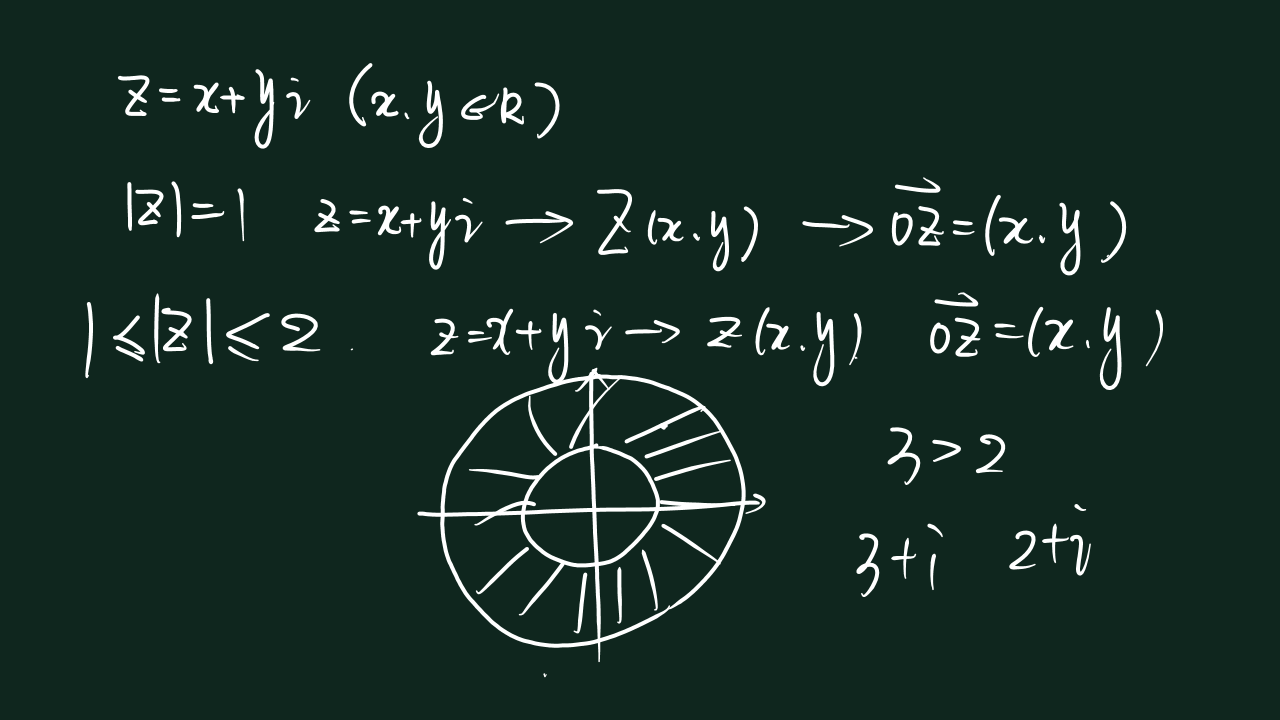 z=x+yi (x.y∈R)
|z|=1 z=x+yi → Z(x.y) → \overrightarrow{OZ}=(x.y)
1≤|z|≤2. z=x+yi → Z(x.y) \overrightarrow{OZ}=(x.y)
3>2
3+i 2+i